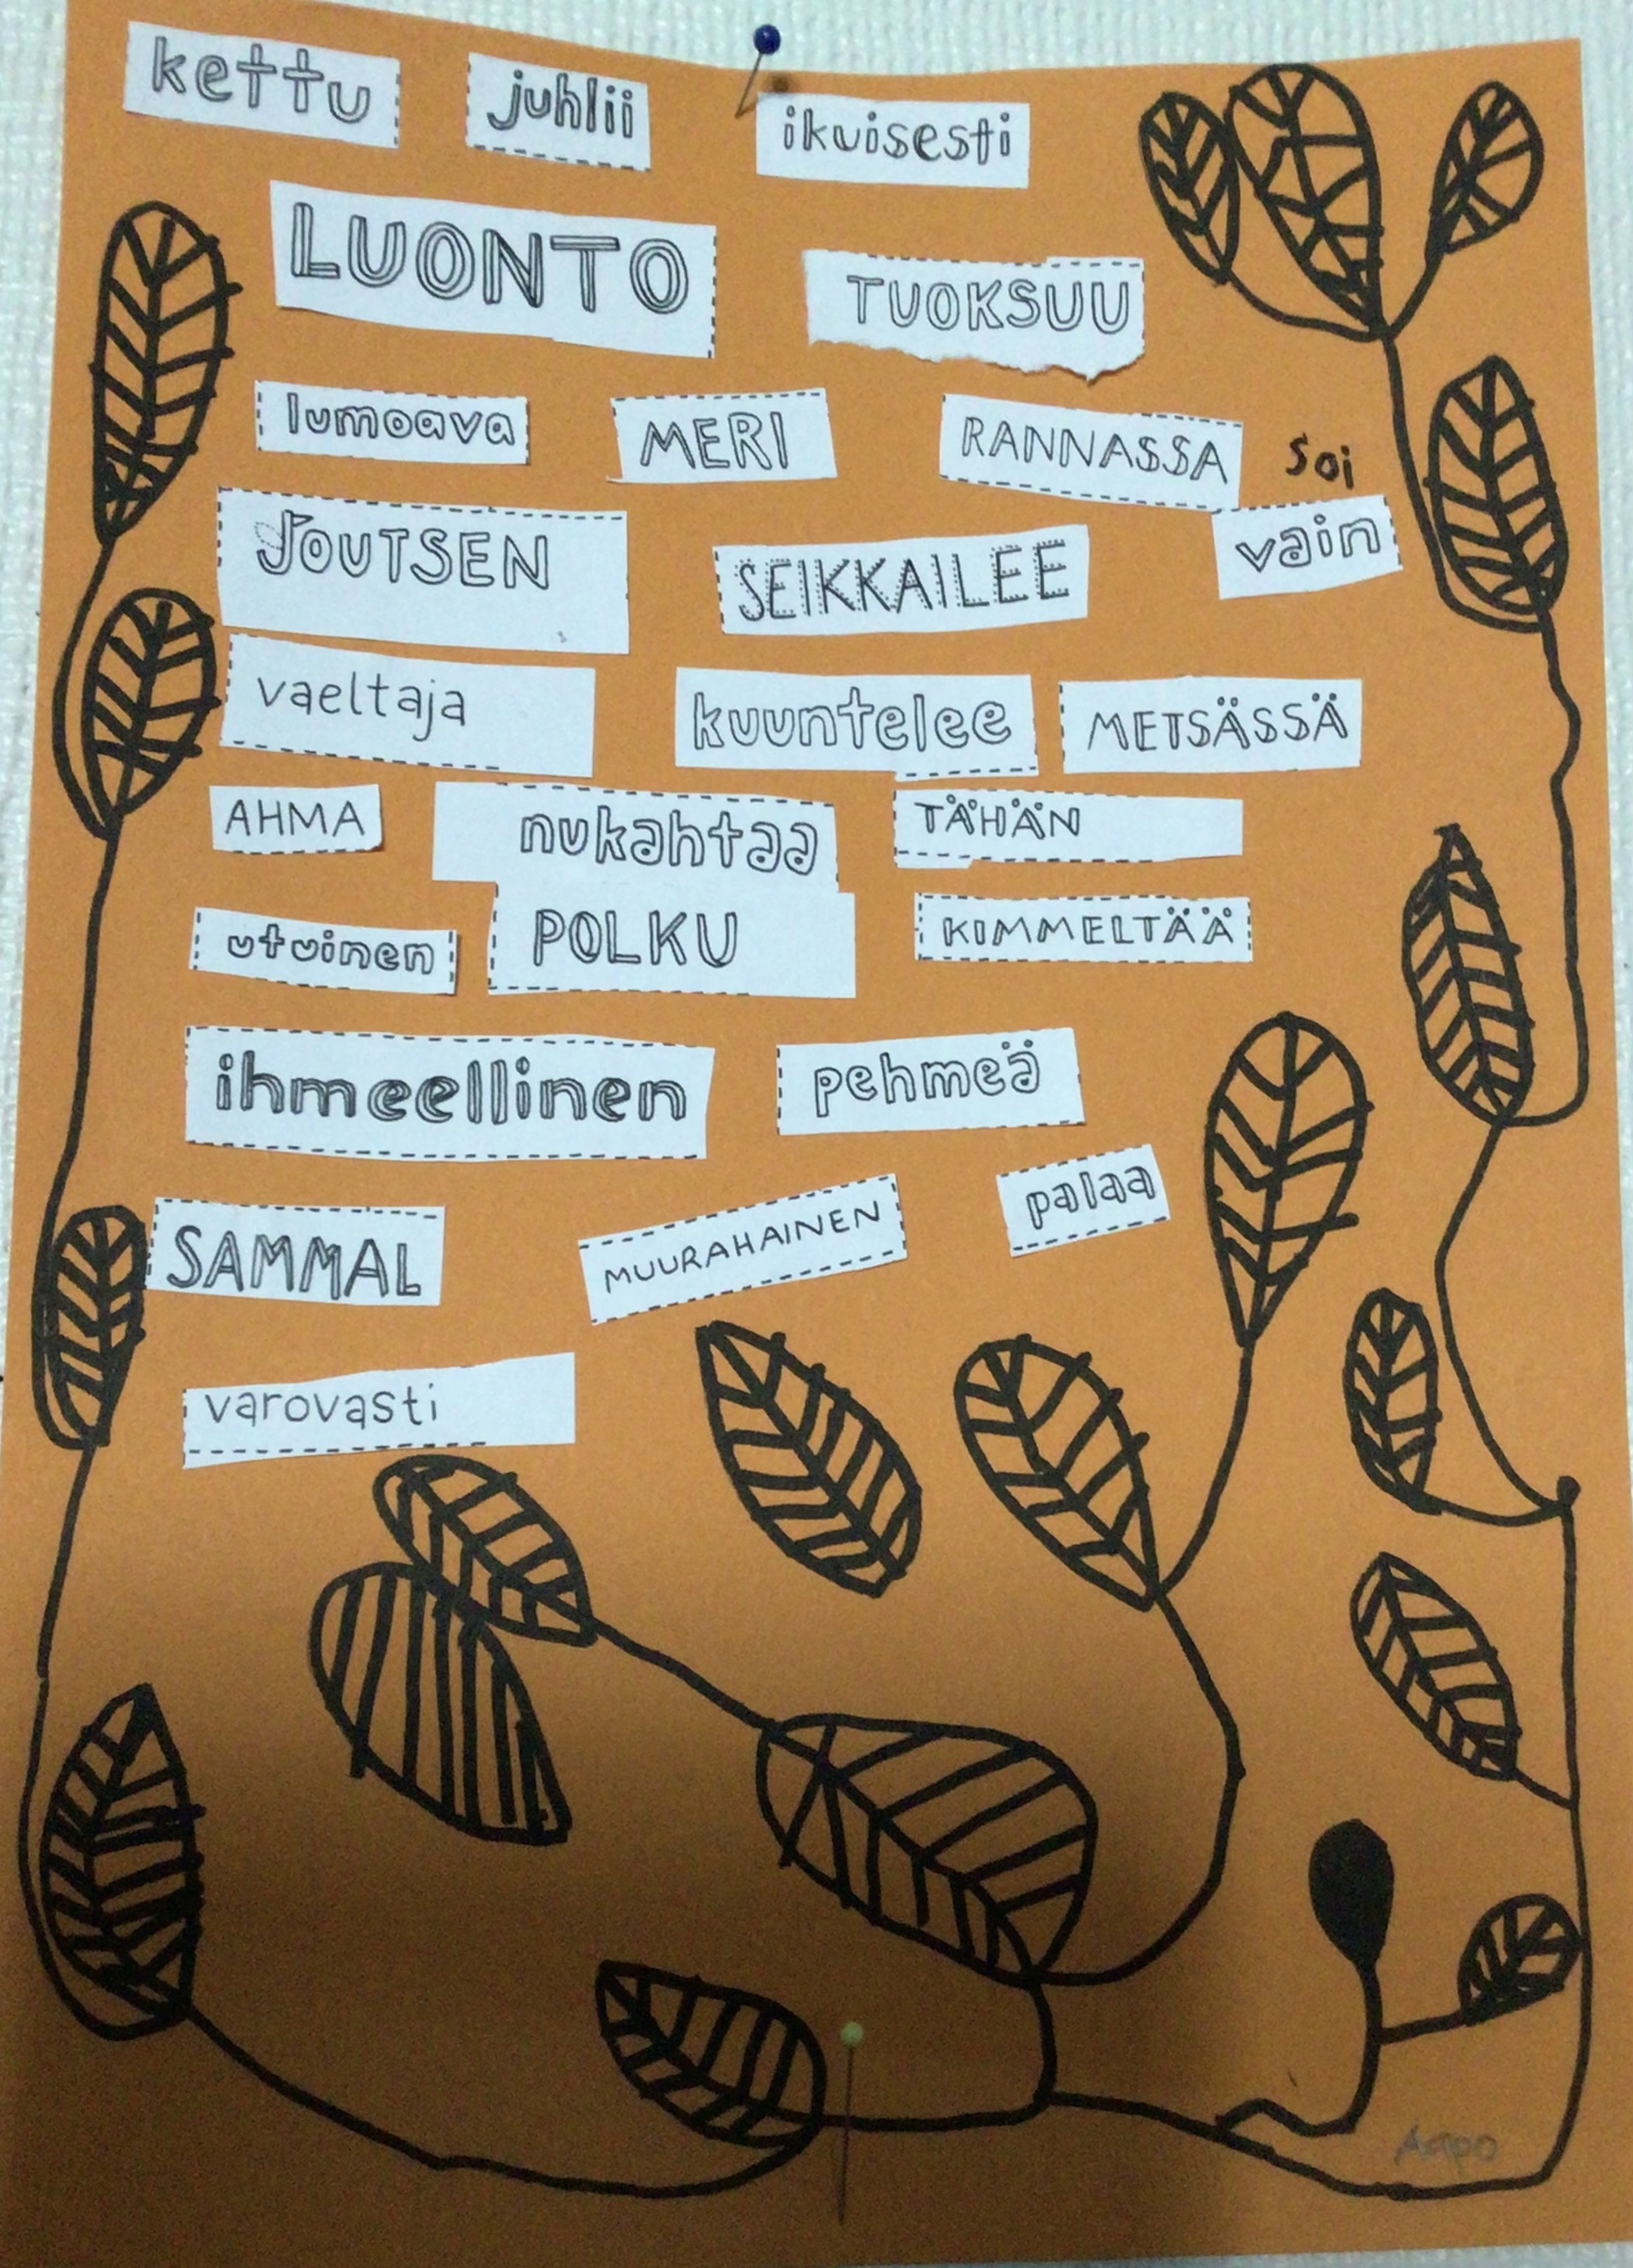 kettu juhlii ikuisesti
LUONTO TUOKSUU
lumoava MERI RANNASSA soi
JOUTSEN SEIKKAILEE vain
vaeltaja kuuntelee METSÄSSÄ
AHMA nukahtaa TÄHÄN
utuinen POLKU KIMMELTÄÄ
ihmeellinen pehmeä
SAMMAL MUURAHAINEN palaa
varovasti
Aapo